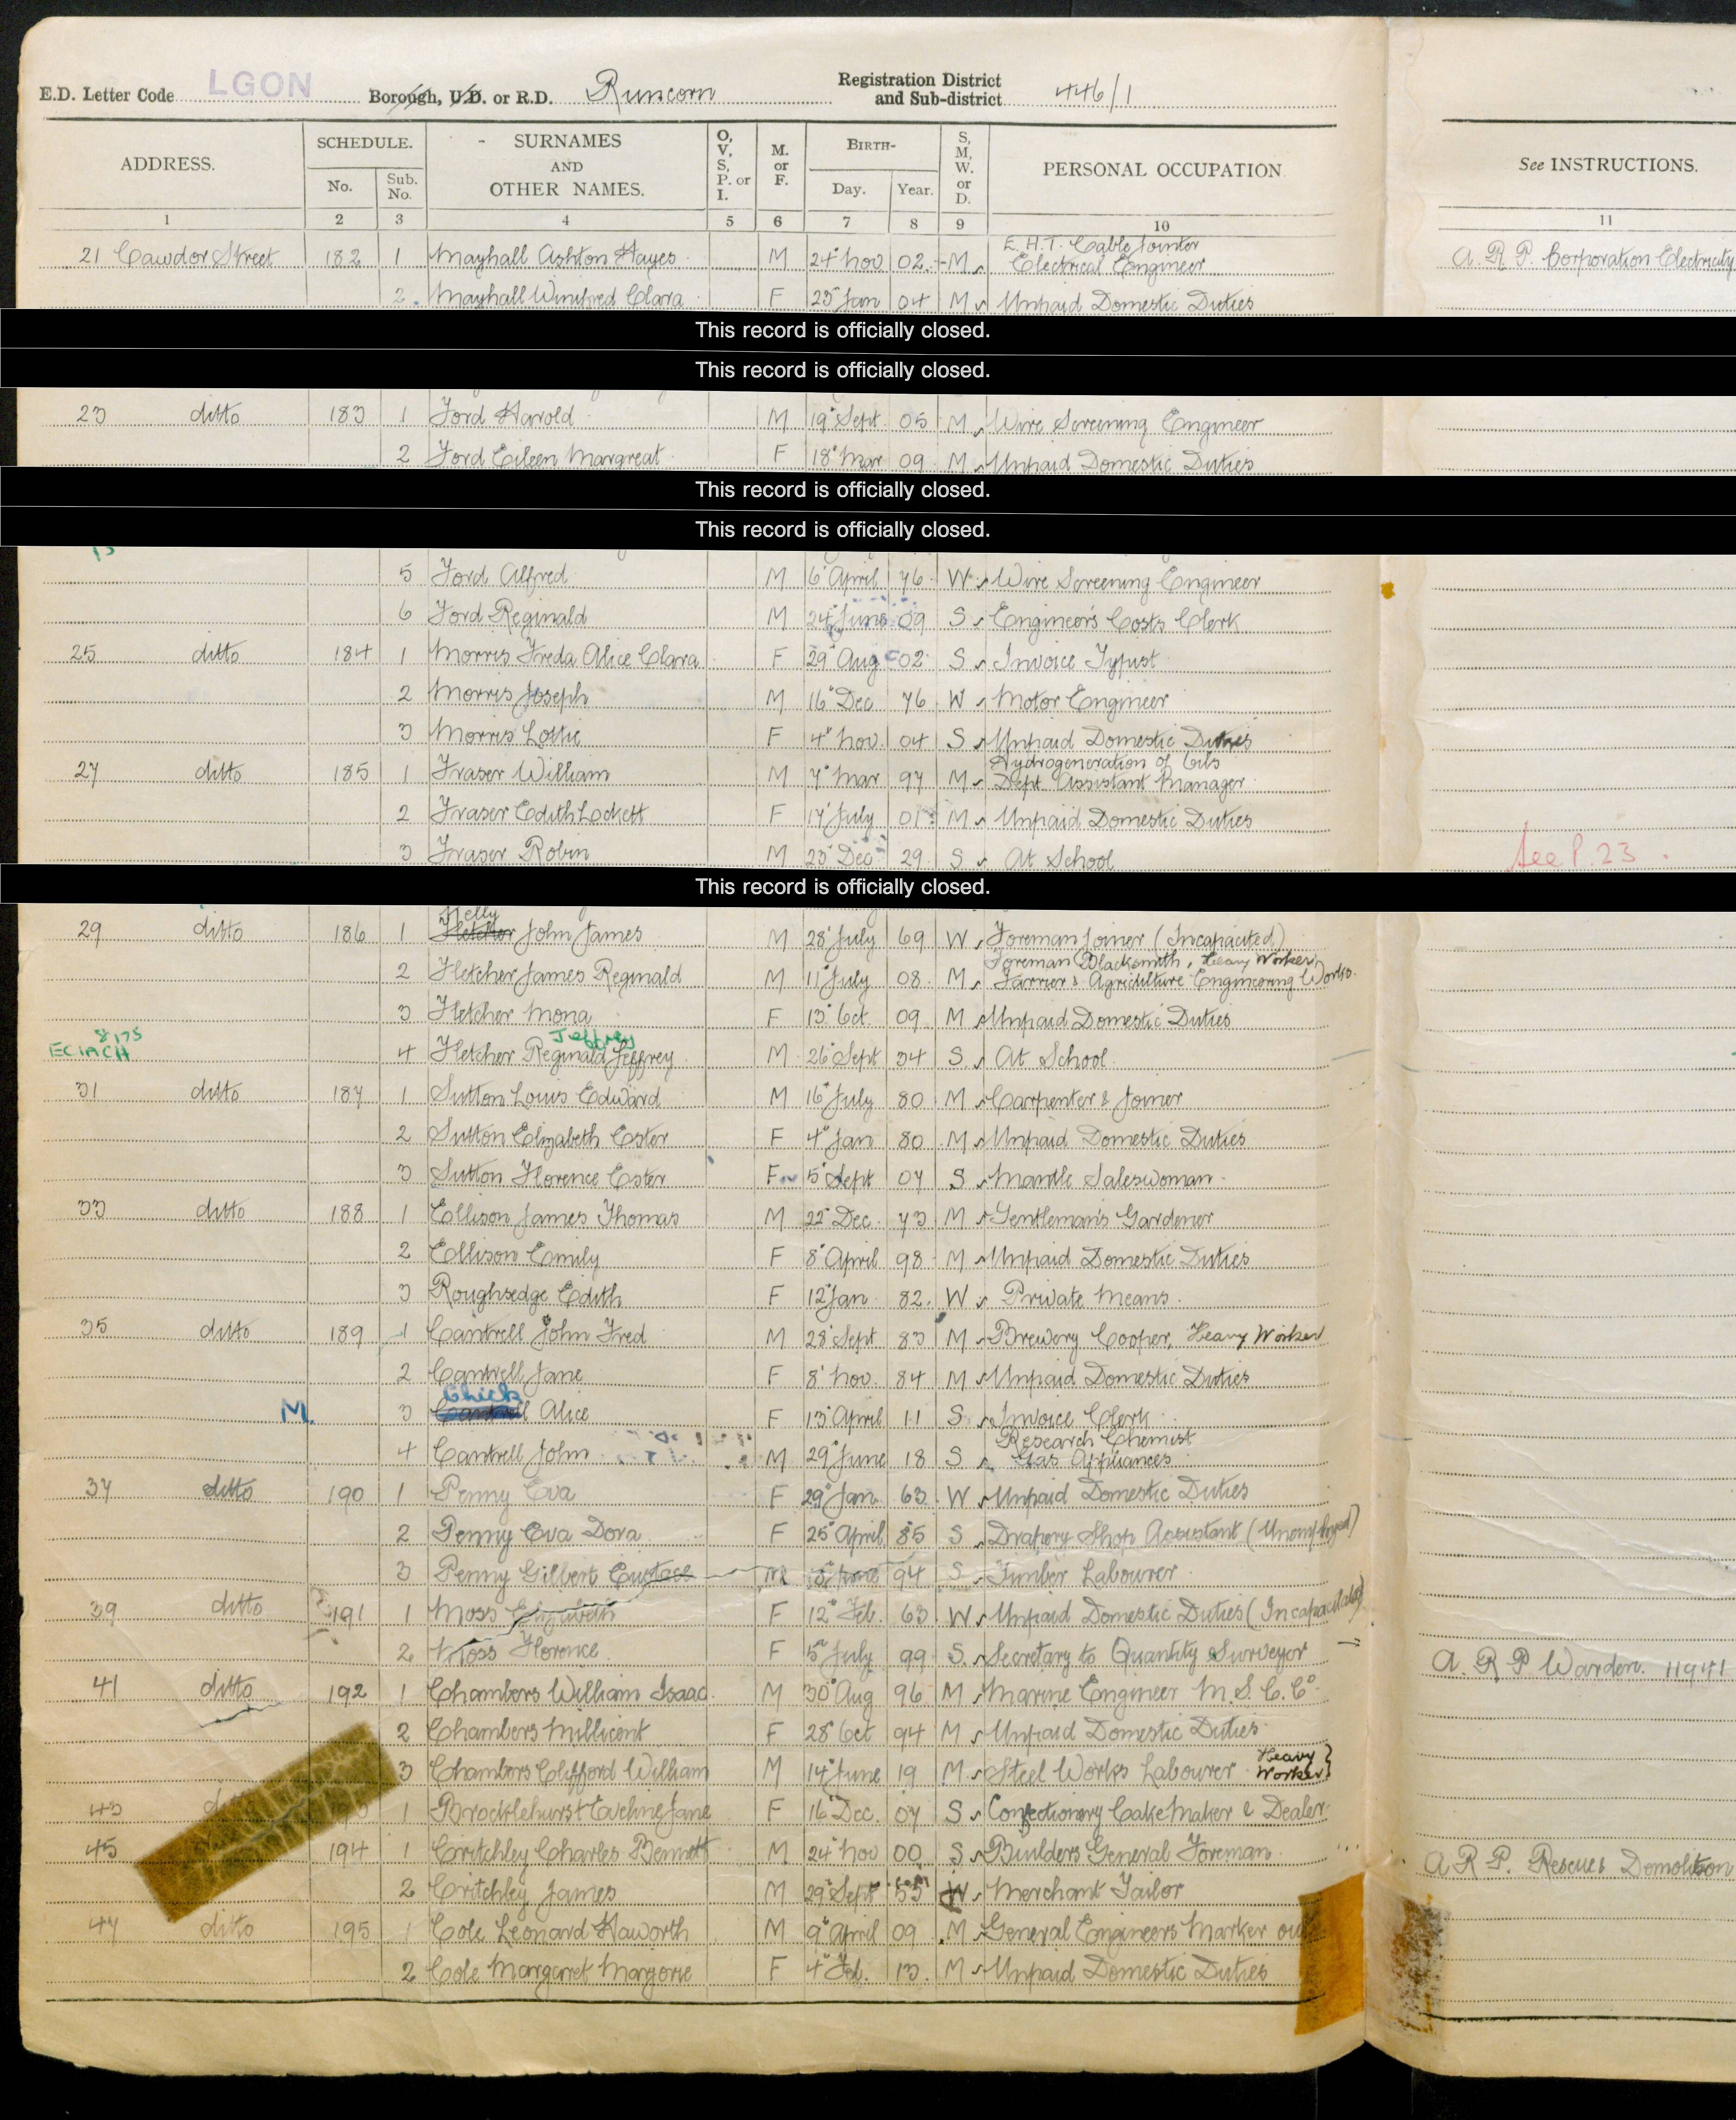 E.D. Letter Code LGON Borough, U.D. or R.D. Runcorn Registration District and Sub-district 446/1
ADDRESS. SCHEDULE. No. Sub. No. SURNAMES AND OTHER NAMES. O, V, S, P. or I. M. or F. BIRTH- Day. Year. S, M, W. or D. PERSONAL OCCUPATION See INSTRUCTIONS.
1 2 3 4 5 6 7 8 9 10 11
E.H.T. Cable Jointer
21 Cawdor Street 182 1 Mayhall Ashton Hayes M 24" Nov 02 M Electrical Engineer A.R.P. Corporation Electricity
2 Mayhall Winifred Clara F 25" Jan 04 M Unpaid Domestic Duties
This record is officially closed.
This record is officially closed.
23 ditto 183 1 Ford Harold M 19" Sept 05 M Wire Screening Engineer
2 Ford Eileen Margreat F 18" Mar 09 M Unpaid Domestic Duties
This record is officially closed.
This record is officially closed.
5 Ford Alfred M 6" April 76 W Wire Screening Engineer
6 Ford Reginald M 24" June 09 S Engineer's Costs Clerk
25 ditto 184 1 Morris Freda Alice Clara F 29" Aug 02 S Invoice Typist
2 Morris Joseph M 16" Dec 76 W Motor Engineer
3 Morris Lottie F 4" Nov 04 S Unpaid Domestic Duties
Hydrogeneration of Oils
27 ditto 185 1 Fraser William M 7" Mar 97 M Dept. Assistant Manager
2 Fraser Edith Lockett F 17" July 01 M Unpaid Domestic Duties
3 Fraser Robin M 23" Dec 29 S At School See P. 23.
This record is officially closed.
Kelly
29 ditto 186 1 Fletcher John James M 28" July 69 W Foreman Joiner (Incapacited)
Foreman Blacksmith, Heavy Worker
2 Fletcher James Reginald M 11" July 08 M Farrier & Agriculture Engineering Works.
3 Fletcher Mona F 13" Oct. 09 M Unpaid Domestic Duties
8175 Jeffrey
ECIACH 4 Fletcher Reginald Jeffrey M 26" Sept 34 S At School
31 ditto 187 1 Sutton Louis Edward M 16" July 80 M Carpenter & Joiner
2 Sutton Elizabeth Ester F 4" Jan 80 M Unpaid Domestic Duties
3 Sutton Florence Ester F 5" Sept 07 S Mantle Saleswoman
33 ditto 188 1 Ellison James Thomas M 22" Dec. 73 M Gentleman's Gardener
2 Ellison Emily F 8" April 98 M Unpaid Domestic Duties
3 Roughsedge Edith F 12" Jan 82 W Private Means
35 ditto 189 1 Cantrell John Fred M 28" Sept 83 M Brewery Cooper, Heavy Worker
2 Cantrell Jane F 8" Nov. 84 M Unpaid Domestic Duties
Chick
M. 3 Cantrell Alice F 13" April 11 S Invoice Clerk
Research Chemist
4 Cantrell John M 29" June 18 S Gas Appliances
37 ditto 190 1 Penny Eva F 29" Jan 63 W Unpaid Domestic Duties
2 Penny Eva Dora F 25" April 85 S Drapery Shop Assistant (Unemployed)
3 Penny Gilbert Eustace M June 94 S Timber Labourer
39 ditto 191 1 Moss Elizabeth F 12" Feb. 63 W Unpaid Domestic Duties (Incapacitated)
2 Moss Florence F 5" July 99 S Secretary to Quantity Surveyor A.R.P Warden. 11971
41 ditto 192 1 Chambers William Isaac M 30" Aug 96 M Marine Engineer M.S.C. Co.
2 Chambers Millicent F 28" Oct 94 M Unpaid Domestic Duties
3 Chambers Clifford William M 14" June 19 M Steel Works Labourer Heavy Worker
43 1 Brocklehurst Eveline Jane F 16" Dec. 07 S Confectionery Cake Maker & Dealer
45 194 1 Critchley Charles Bennett M 24" Nov 00 S Builders General Foreman A.R.P. Rescue & Demolition
2 Critchley James M 29" Sept 55 W Merchant Tailor
47 ditto 195 1 Cole Leonard Haworth M 9" April 09 M General Engineers Marker out
2 Cole Margaret Marjorie F 4" Feb. 13 M Unpaid Domestic Duties